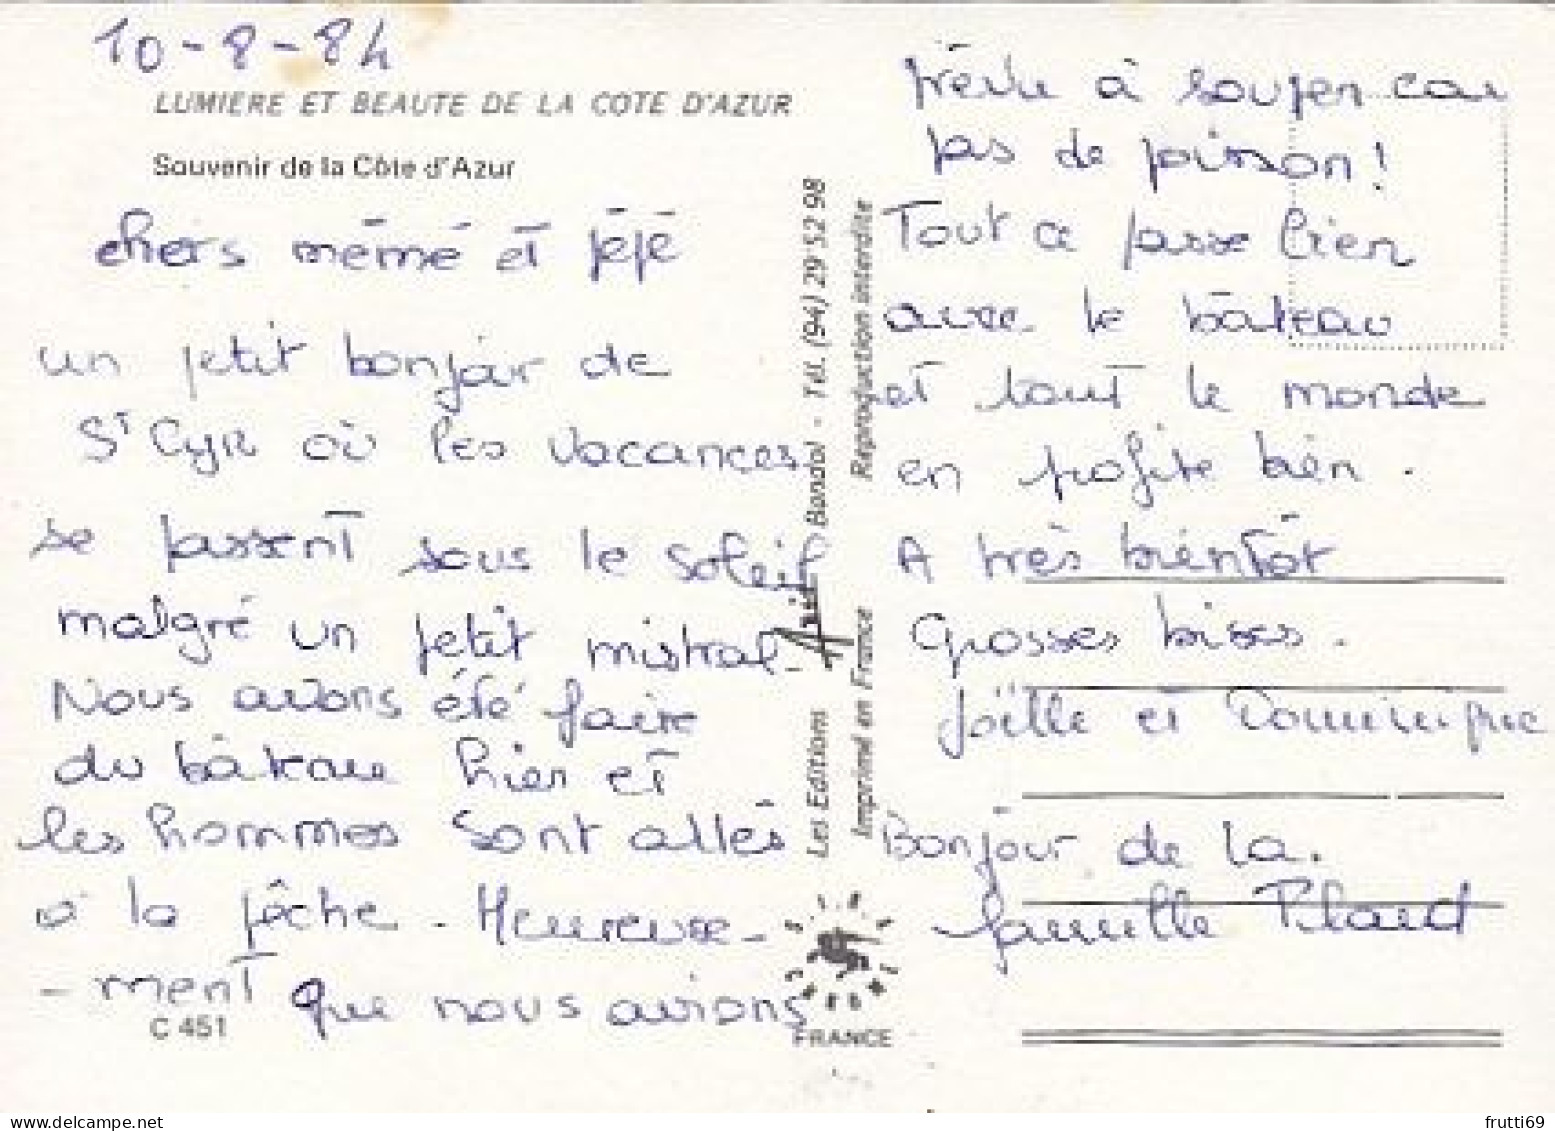 10-8-84
LUMIERE ET BEAUTE DE LA COTE D'AZUR
Souvenir de la Côte d'Azur
chers mémé et pépé
un petit bonjour de
St Cyr où les vacances
se passent sous le soleil
malgré un petit mistral.
Nous avons été faire
du bâteau hier et
les hommes sont allés
à la pêche - Heureuse-
- ment que nous avions
C 451
Les Editions
Bandol - Tél. (94) 29 52 98
Imprimé en France
Reproduction interdite
FRANCE
à souper car
pas de poisson!
Tout ce passe bien
avec le bâteau
et tout le monde
en profite bien.
A très bientôt
Grosses bises.
Joëlle et Dominique
Bonjour de la
famille
frutti69